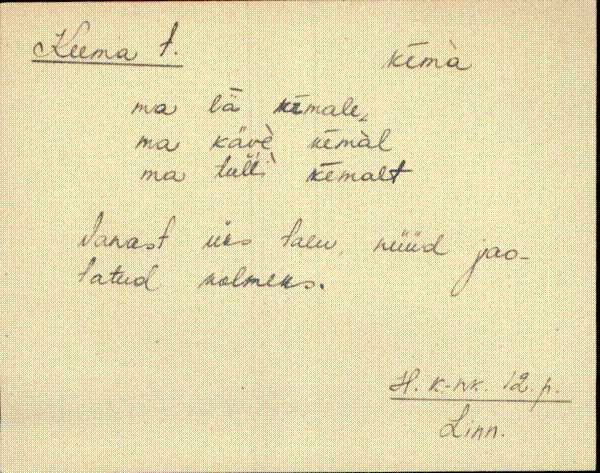 Keema t.
kēmà
ma lä kēmale,
ma kävè kēmàl
ma tulìì kēmalt
Vanast üks talu, nüüd jao-
tatud kolmeks.
H. k-nk. 12. p.
Linn.